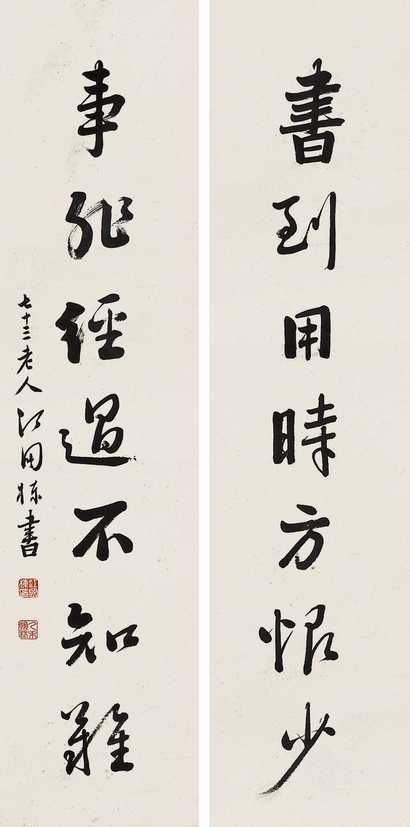 書到用時方恨少
事非經過不知難
七十三老人江田㨂書